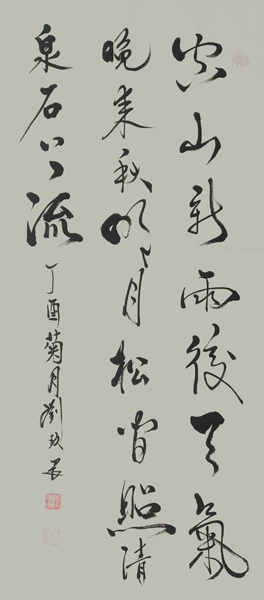 空山新雨後天氣
晚来秋明月松間照清
泉石上流
丁酉菊月劉